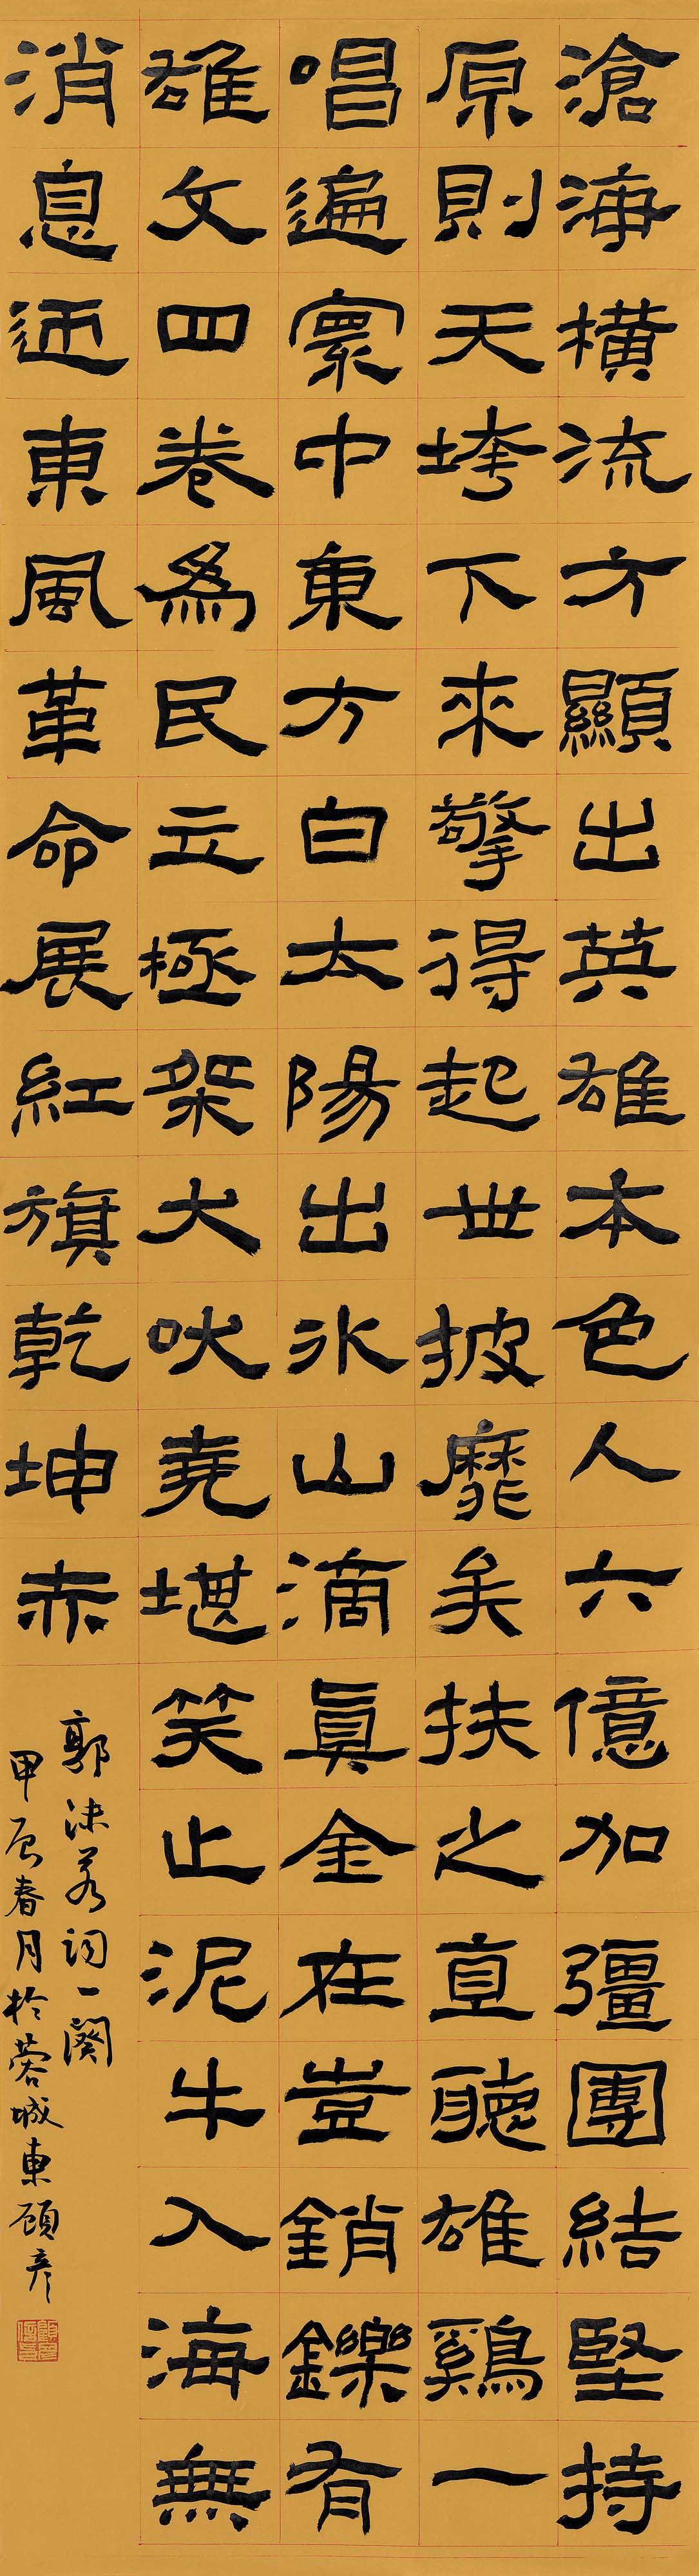 滄海橫流方顯出英雄本色人六億加彊團結堅持
原則天垮下來擎得起世披靡矣扶之直聽雄鷄一
唱遍寰中東方白太陽出氷山滴眞金在豈銷鑠有
雄文四卷爲民立極桀犬吠堯堪笑止泥牛入海無
消息迎東風革命展紅旗乾坤赤
郭沫若詞一闋
甲辰春月於蓉城東顧彦